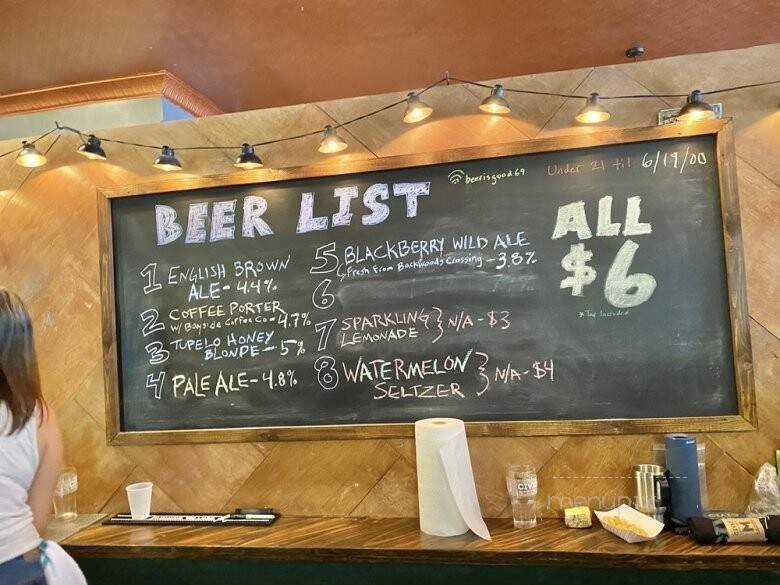 beerisgood69
Under 21 til 6/19/00
BEER LIST
ALL
$6
* Tax Included
1 ENGLISH BROWN
ALE - 4.4%
2 COFFEE PORTER
w/ Bayside Coffee Co - 4.7%
3 TUPELO HONEY
BLONDE - 5%
4 PALE ALE - 4.8%
5 BLACKBERRY WILD ALE
Fresh From Backwoods Crossing - 3.8%
6
7 SPARKLING
LEMONADE } N/A - $3
8 WATERMELON
SELTZER } N/A - $4
menupix